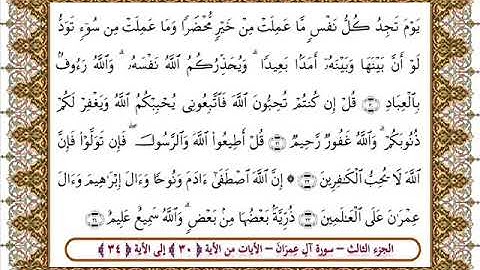 يَوْمَ تَجِدُ كُلُّ نَفْسٍ مَّا عَمِلَتْ مِنْ خَيْرٍ مُّحْضَرًا وَمَا عَمِلَتْ مِن سُوٓءٍ تَوَدُّ
لَوْ أَنَّ بَيْنَهَا وَبَيْنَهُۥٓ أَمَدًۢا بَعِيدًا ۗ وَيُحَذِّرُكُمُ ٱللَّهُ نَفْسَهُۥ ۗ وَٱللَّهُ رَءُوفٌۢ
بِٱلْعِبَادِ ﴿٣٠﴾ قُلْ إِن كُنتُمْ تُحِبُّونَ ٱللَّهَ فَٱتَّبِعُونِى يُحْبِبْكُمُ ٱللَّهُ وَيَغْفِرْ لَكُمْ
ذُنُوبَكُمْ ۗ وَٱللَّهُ غَفُورٌ رَّحِيمٌ ﴿٣١﴾ قُلْ أَطِيعُوا۟ ٱللَّهَ وَٱلرَّسُولَ ۖ فَإِن تَوَلَّوْا۟ فَإِنَّ
ٱللَّهَ لَا يُحِبُّ ٱلْكَـٰفِرِينَ ﴿٣٢﴾ ۞ إِنَّ ٱللَّهَ ٱصْطَفَىٰٓ ءَادَمَ وَنُوحًا وَءَالَ إِبْرَٰهِيمَ وَءَالَ
عِمْرَٰنَ عَلَى ٱلْعَـٰلَمِينَ ﴿٣٣﴾ ذُرِّيَّةًۢ بَعْضُهَا مِنۢ بَعْضٍ ۗ وَٱللَّهُ سَمِيعٌ عَلِيمٌ ﴿٣٤﴾
الجزء الثالث – سورة آلِ عِمرَان – الآيات من الآية ﴿٣٠﴾ إلى الآية ﴿٣٤﴾